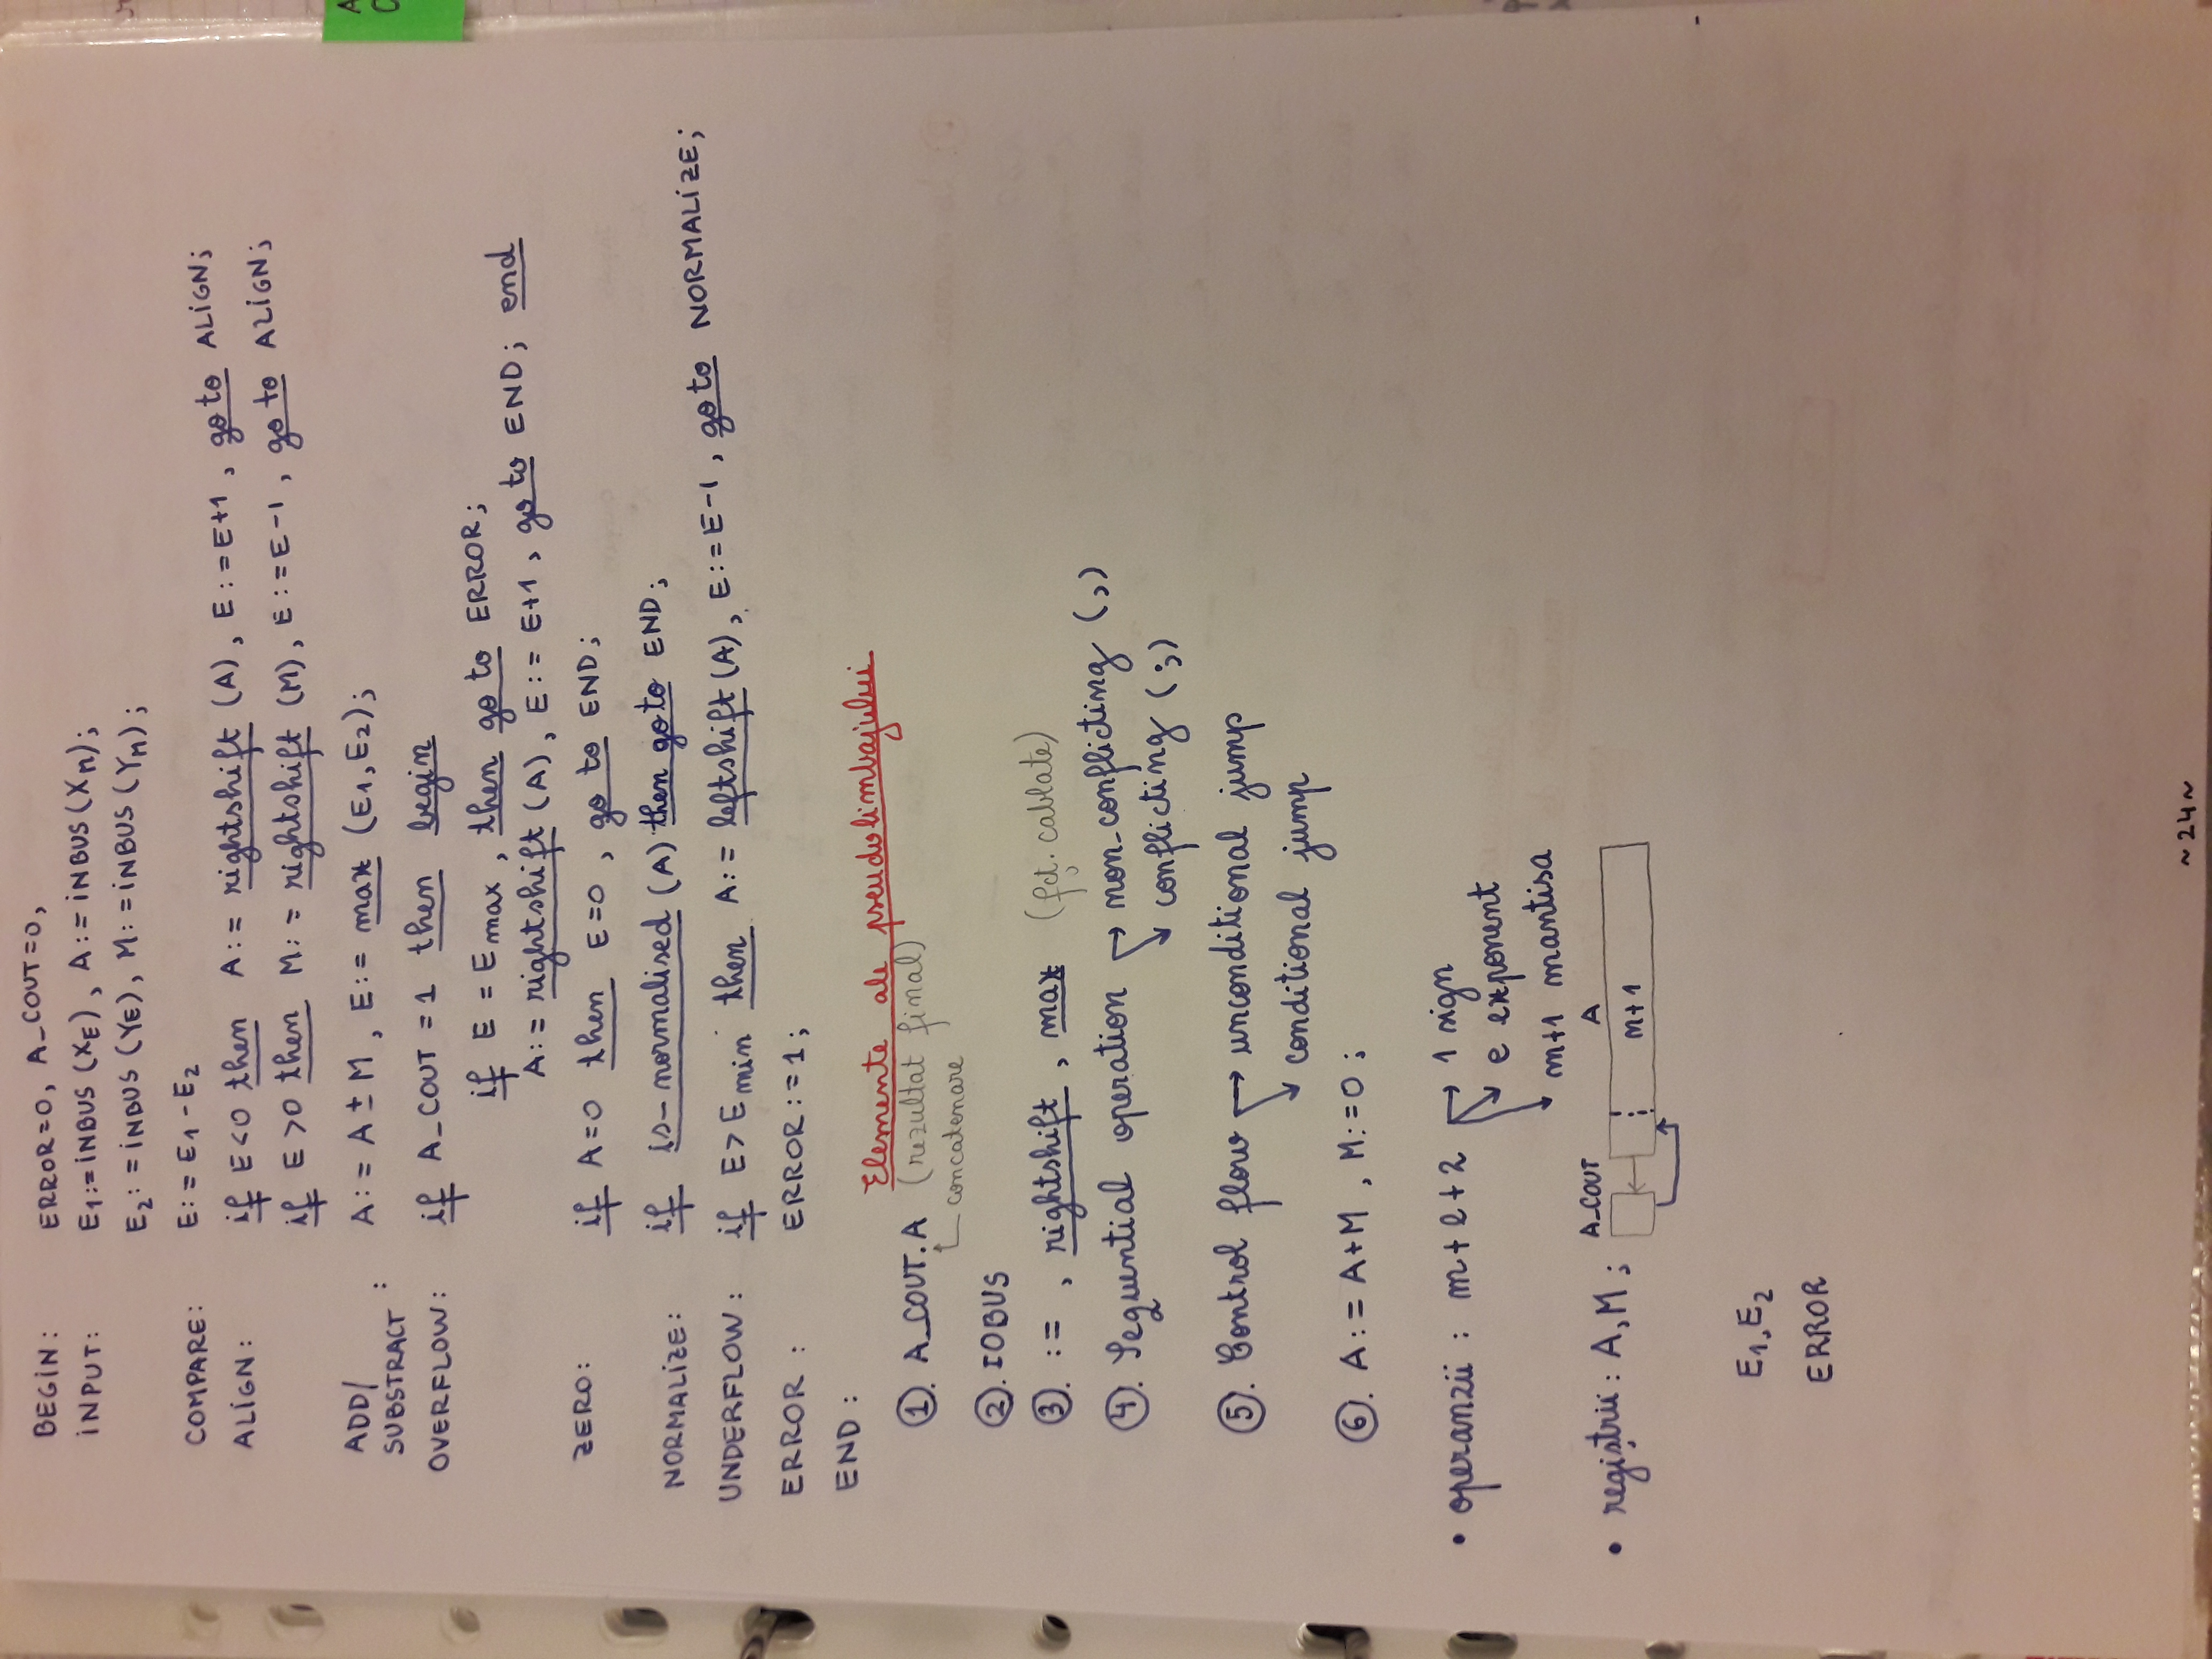 BEGIN: ERROR=0, A_COUT=0,
INPUT: E1:=INBUS(XE), A:=INBUS(XM);
E2:=INBUS(YE), M:=INBUS(YM);
COMPARE: E:=E1-E2
ALIGN: if E<0 then A:= rightshift (A), E:=E+1, go to ALIGN;
if E>0 then M:= rightshift (M), E:=E-1, go to ALIGN;
ADD/
SUBSTRACT : A:=A±M, E:= max (E1,E2);
OVERFLOW: if A_COUT=1 then begin
if E=Emax, then go to ERROR;
A:= rightshift (A), E:=E+1, go to END; end
ZERO: if A=0 then E=0, go to END;
NORMALIZE: if is-normalised (A) then go to END;
UNDERFLOW: if E>Emin then A:= leftshift (A), E:=E-1, go to NORMALIZE;
ERROR: ERROR:=1;
END:
Elemente ale pseudolimbajului
①. A_COUT.A (rezultat final)
concatenare
②. IOBUS
③. :=, rightshift, max (fct. cablate)
④. Sequential operation → non-conflicting (,)
conflicting (;)
⑤. Control flow → unconditional jump
conditional jump
⑥. A:=A+M, M:=0;
• operanzii: m+e+2 → 1 sign
e exponent
m+1 mantisa
A_COUT A
• regiștrii: A,M; m+1
E1,E2
ERROR
~24~